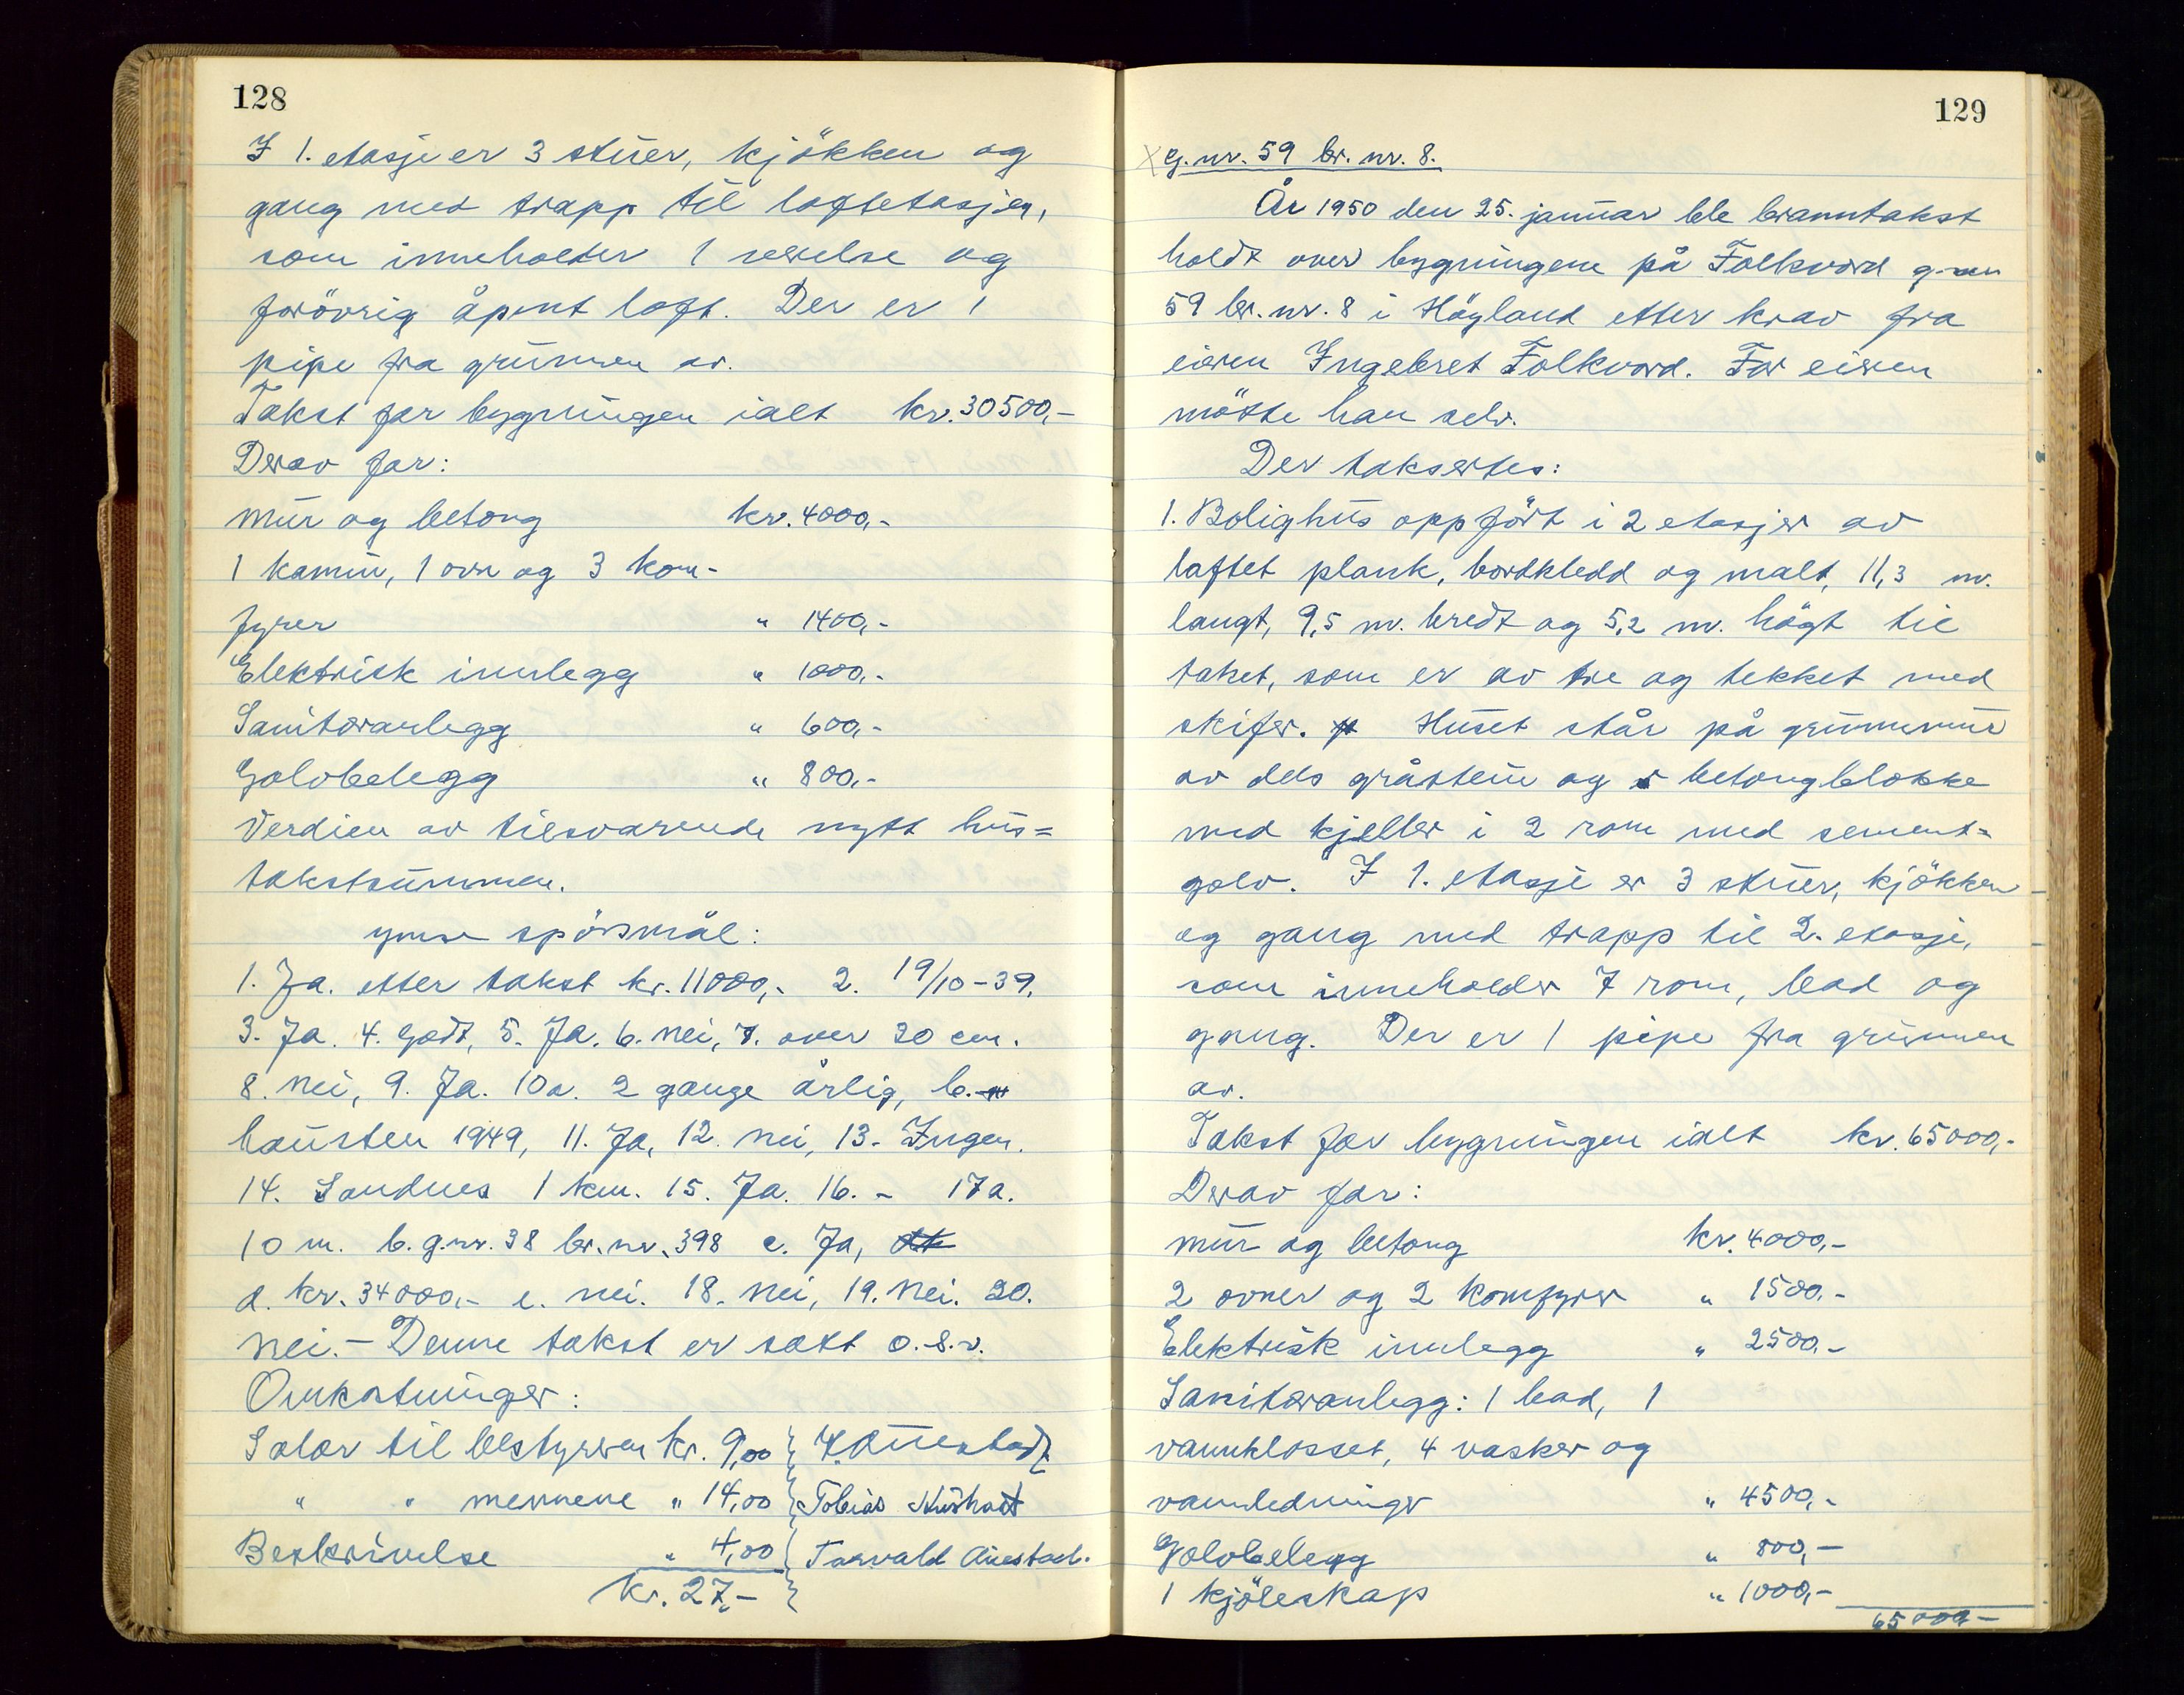 128
I 1. etasje er 3 stuer, kjökken og
gang med trapp til loftetasjen,
som inneholder 1 værelse og
forövrig åpent loft. Der er 1
pipe fra grunnen av.
Takst for bygningen ialt kr. 30500,-
Derav for:
mur og betong kr. 4000,-
1 kamin, 1 ovn og 3 kom-
fyrer " 1400,-
Elektrisk innlegg " 1000,-
Sanitæranlegg " 600,-
Golvbelegg " 800,-
Verdien av tilsvarende nytt hus=
takstsummen.
ymse spörsmål:
1. Ja. etter takst kr. 11000,- 2. 19/10-39.
3. Ja. 4. Godt, 5. Ja. 6. nei, 7. over 30 cm.
8. nei, 9. Ja. 10a. 2 gange årlig, b.
hausten 1949, 11. Ja, 12. nei, 13. Ingen.
14. Sandnes 1 km. 15. Ja. 16. - 17a.
10 m. b. g.nr. 38 br.nr. 398 c. Ja,
d. kr. 34000,- e. nei. 18. nei, 19. nei. 20.
nei. - Denne takst er satt o.s.v.
Omkostninger:
Salær til bestyreren kr. 9,00 Auestad
" " mennene " 14,00 Tobias
Beskrivelse " 4,00 Torvald Auestad.
kr. 27,-
129
x g.nr. 59 br. nr. 8.
År 1950 den 25. januar ble branntakst
holdt over bygningene på Folkvord g.nr
59 br. nr. 8 i Höyland etter krav fra
eieren Ingebret Folkvord. For eieren
mötte han selv.
Der taksertes:
1. Bolighus oppfört i 2 etasjer av
laftet plank, bordkledd og malt, 11,3 m.
langt, 9,5 m. bredt og 5,2 m. högt til
taket, som er av tre og tekket med
skifer. Huset står på grunnmur
av dels gråstein og betongblokke
med kjeller i 2 rom med sement=
golv. I 1. etasje er 3 stuer, kjökken
og gang med trapp til 2. etasje,
som inneholder 7 rom, bad og
gang. Der er 1 pipe fra grunnen
av.
Takst for bygningen ialt kr. 65000,-
Derav for:
mur og betong kr. 4000,-
2 ovner og 2 komfyrer " 1500,-
Elektrisk innlegg " 2500,-
Sanitæranlegg: 1 bad, 1
vannklosset, 4 vasker og
vannledninger " 4500,-
Golvbelegg " 800,-
1 kjöleskap " 1000,-
65000,-